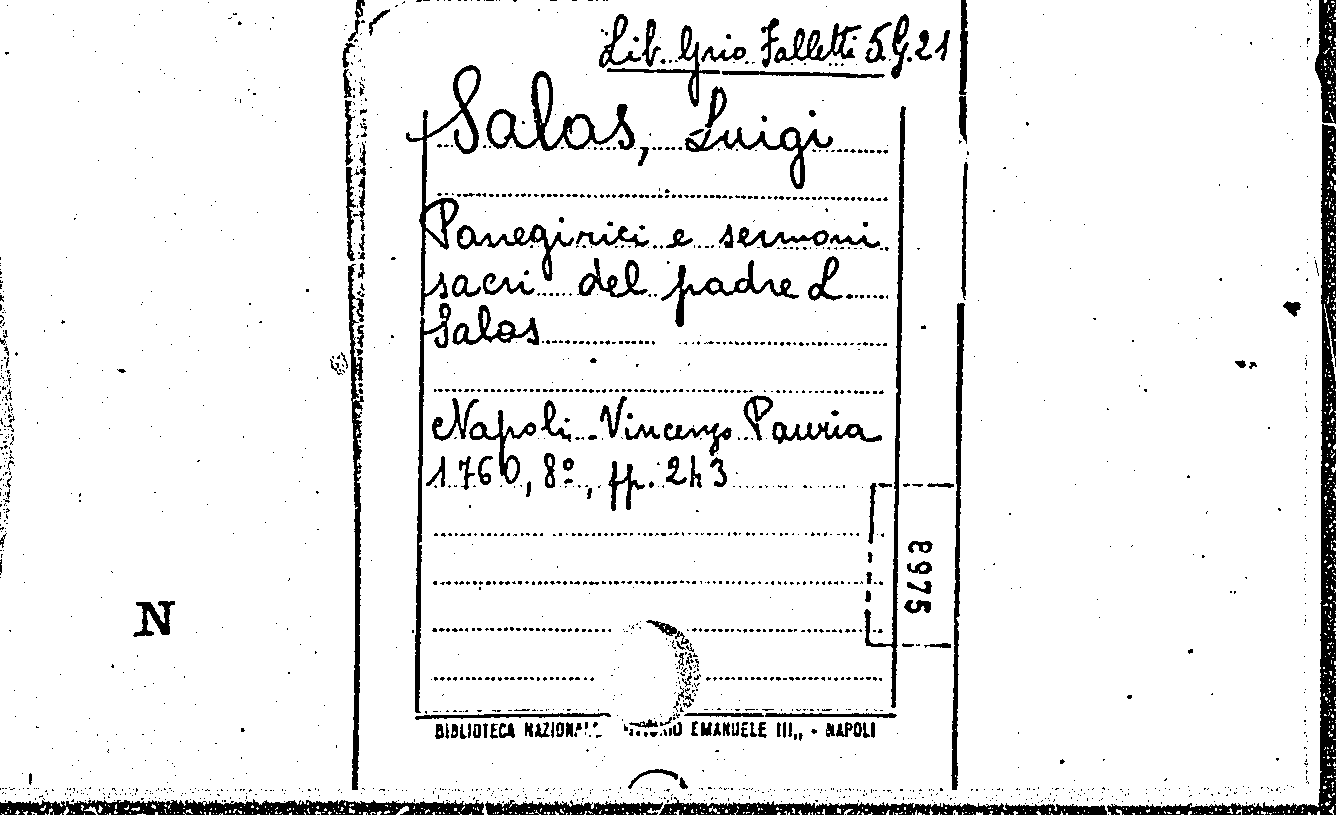 Lib. Grio Falletti 5.G.21
Salas, Luigi
Panegirici e sermoni
sacri del padre L
Salas
Napoli Vincenzo Pauria
1760, 8º, pp. 243
8975
N
BIBLIOTECA NAZIONALE VITTORIO EMANUELE III,, - NAPOLI